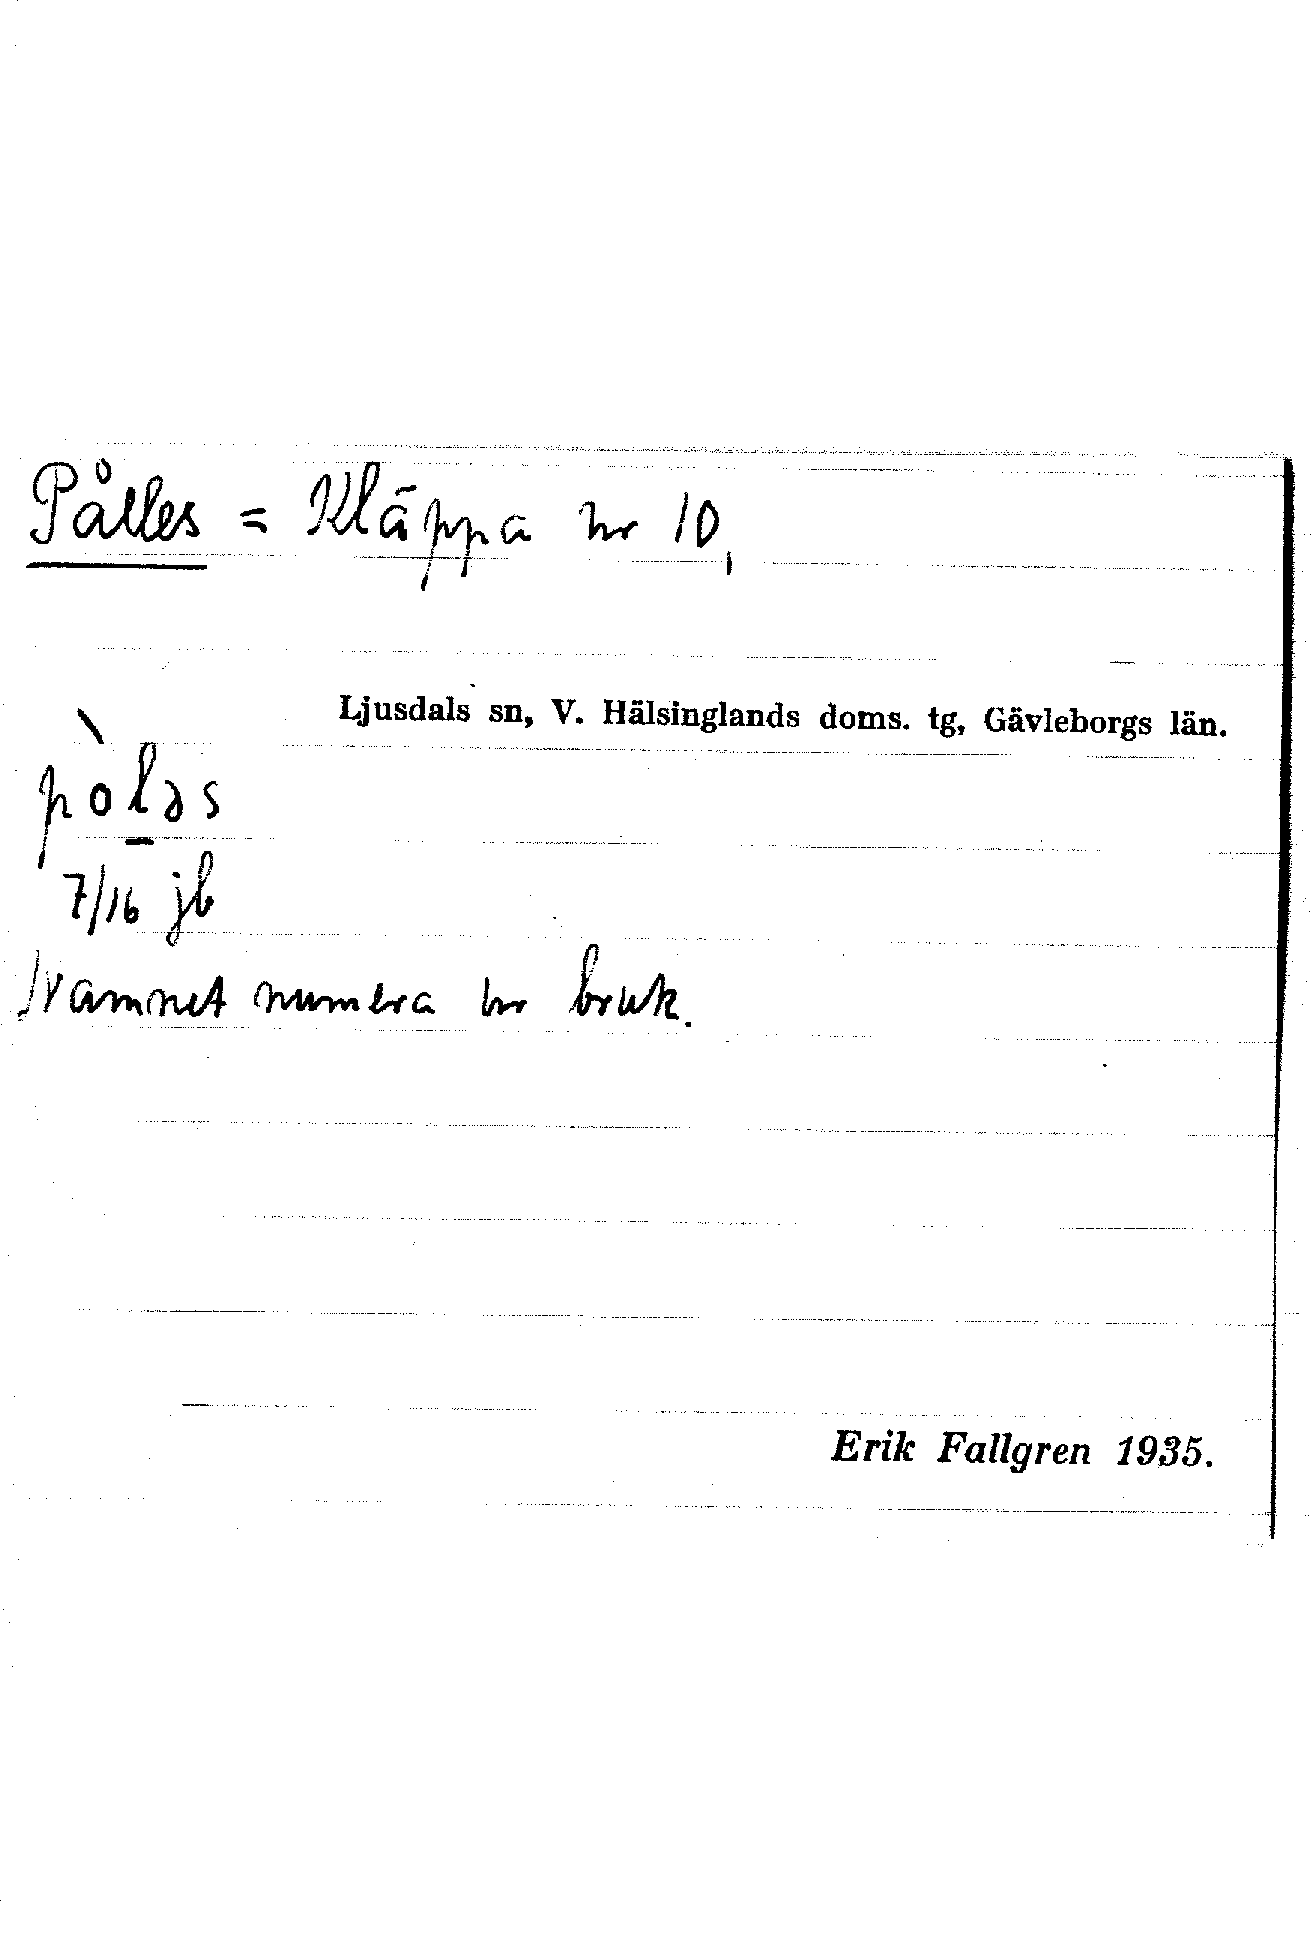 Pålles = Kläppa nr 10,
Ljusdals sn, V. Hälsinglands doms. tg, Gävleborgs län.
pòl̠əs
7/16 jb
Namnet numera ur bruk.
Erik Fallgren 1935.